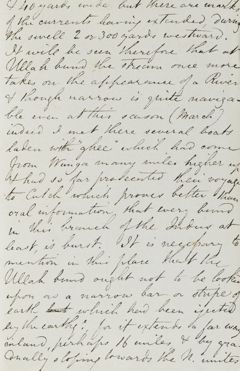 & 40 yards wide but there are marks
of the currents having extended, during
the swell 2 or 300 yards westward.
It will be seen therefore that at
Ullah bund the stream once more
takes on the appearance of a River
& though narrow is quite naviga-
ble even at this season (March)
indeed I met there several boats
laden with "ghee" which had come
from Wunga many miles higher up
& had so far prosecuted their voyage
to Cutch which proves better than
oral information, that every bund
in this branch of the Indus at
least, is burst. It is necessary to
mention in this place that the
Ullah bund ought not to be looked
upon as a narrow bar or stripe of
earth which had been ejected
by the earthq; for it extends to far
inland, perhaps 16 miles & by gra-
dually sloping towards the N. unites